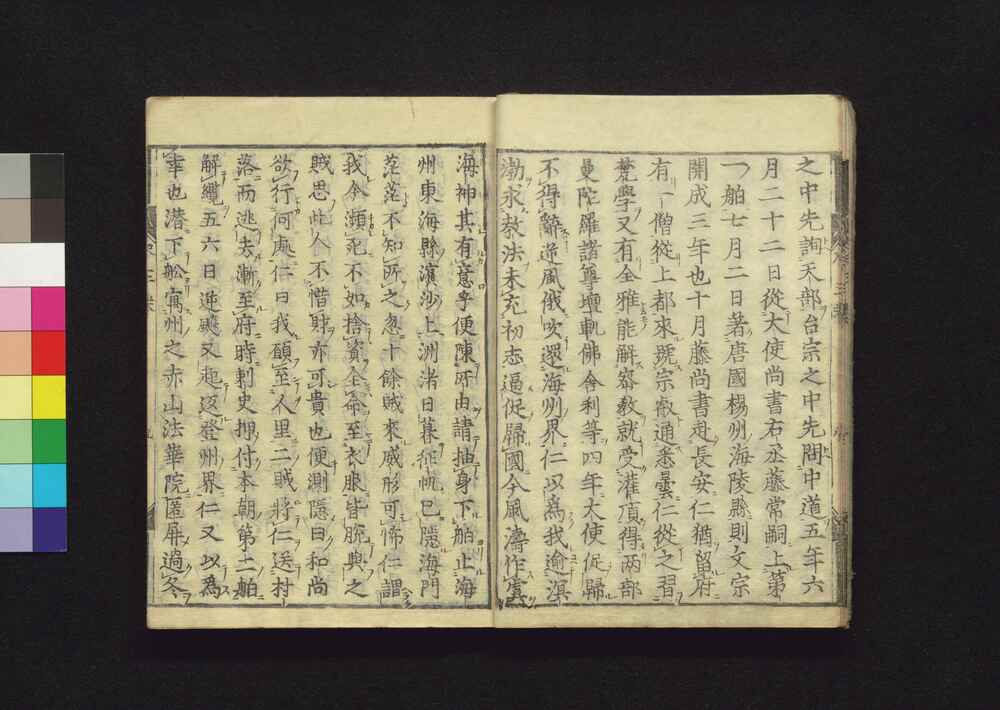 之中先詢天部台宗之中先問中道五年六
月二十二日從大使尚書右丞藤常嗣上第
一舶七月二日著唐國楊州海陵縣則文宗
開成三年也十月藤尚書赴長安仁猶留府
有一僧從上都來號宗叡通悉曇仁從之習
梵學又有全雅能解密教就受灌頂得兩部
曼陀羅諸尊壇軌佛舍利等四年大使促歸
不得辭逆風俄吹還海州界仁以為我逾溟
渤求教法未充初志逼促歸國今風濤作寞
海神其有意乎便陳所由請抽身下舶止海
州東海縣濱沙上洲渚日暮征帆已隱海門
茫茫不知所之忽十餘賊來威形可怖仁謂
我今瀕死不如捨資全命至衣服皆脫與之
賊思此人不惜財亦可貴也便測隱曰和尚
欲行何處仁曰我願至人里二賊將仁送村
落而逃去漸至府時刺史押付本朝第二舶
解纜五六日逆飇又起返登州界仁又以為
幸也潜下舩寓州之赤山法華院匿屏過冬